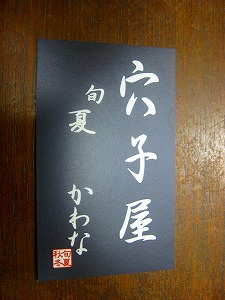 穴子屋
旬夏 かわな
旬夏
秋冬